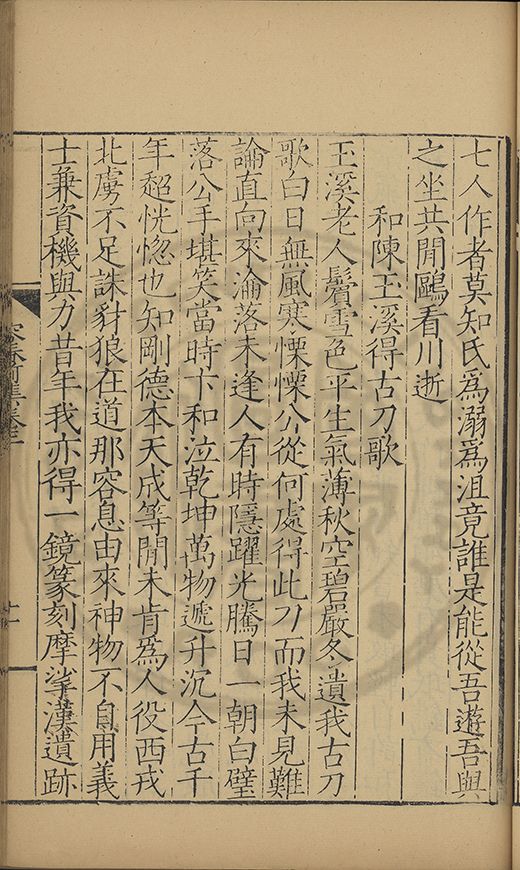 七人作者莫知氏爲溺爲沮竟誰是能從吾遊吾與
之坐共閒鷗看川逝
和陳玉溪得古刀歌
玉溪老人鬢雪色平生氣薄秋空碧嚴冬遺我古刀
歌白日無風寒慄慄公從何處得此刀而我未見難
論直向來淪落未逢人有時隱躍光騰日一朝白璧
落公手堪笑當時卞和泣乾坤萬物遞升沉今古千
年超恍惚也知剛德本天成等閒未肯爲人役西戎
北虜不足誅豺狼在道那容息由來神物不自用義
士兼資機與力昔年我亦得一鏡篆刻摩挲漢遺跡